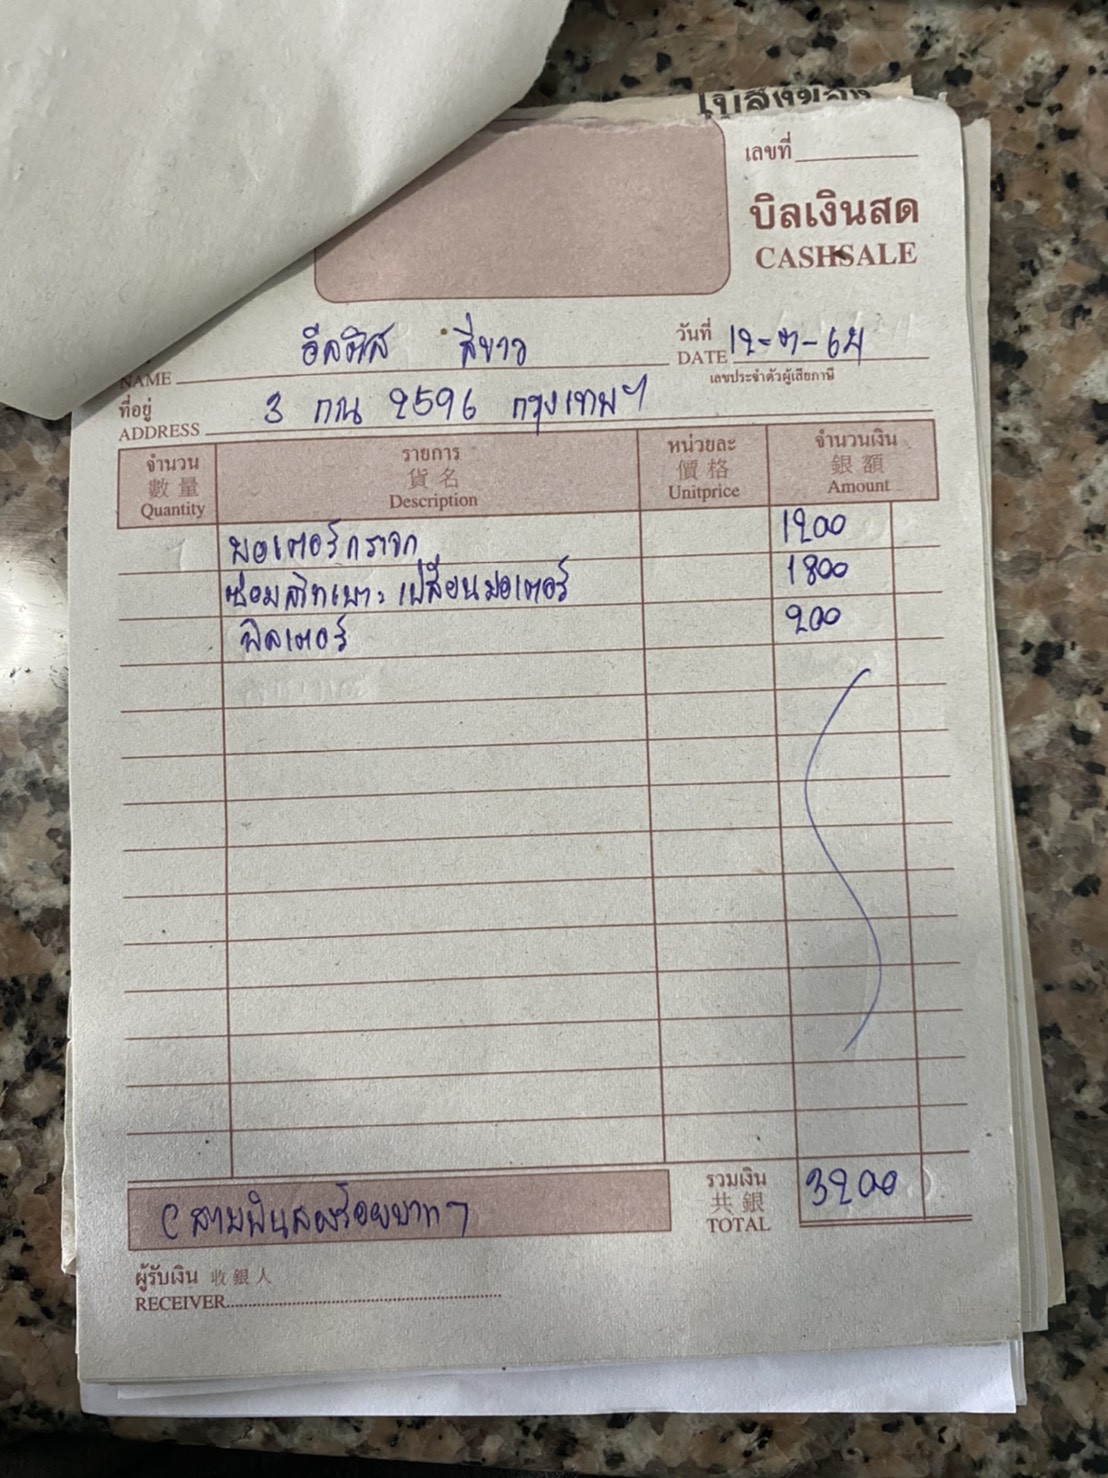 ใบส่งของ
เลขที่
บิลเงินสด
CASHSALE
วันที่
NAME อัลติส สีขาว DATE 12-7-64
เลขประจำตัวผู้เสียภาษี
ที่อยู่
ADDRESS 3 กณ 2596 กรุงเทพฯ
จำนวน รายการ หน่วยละ จำนวนเงิน
數量 貨名 價格 銀額
Quantity Description Unitprice Amount
1 มอเตอร์กระจก 1200
ซ่อมสวิทเบาะ เปลี่ยนมอเตอร์ 1800
ฟิลเตอร์ 200
รวมเงิน
共銀
TOTAL 3200
(สามพันสองร้อยบาท)
ผู้รับเงิน 收銀人
RECEIVER